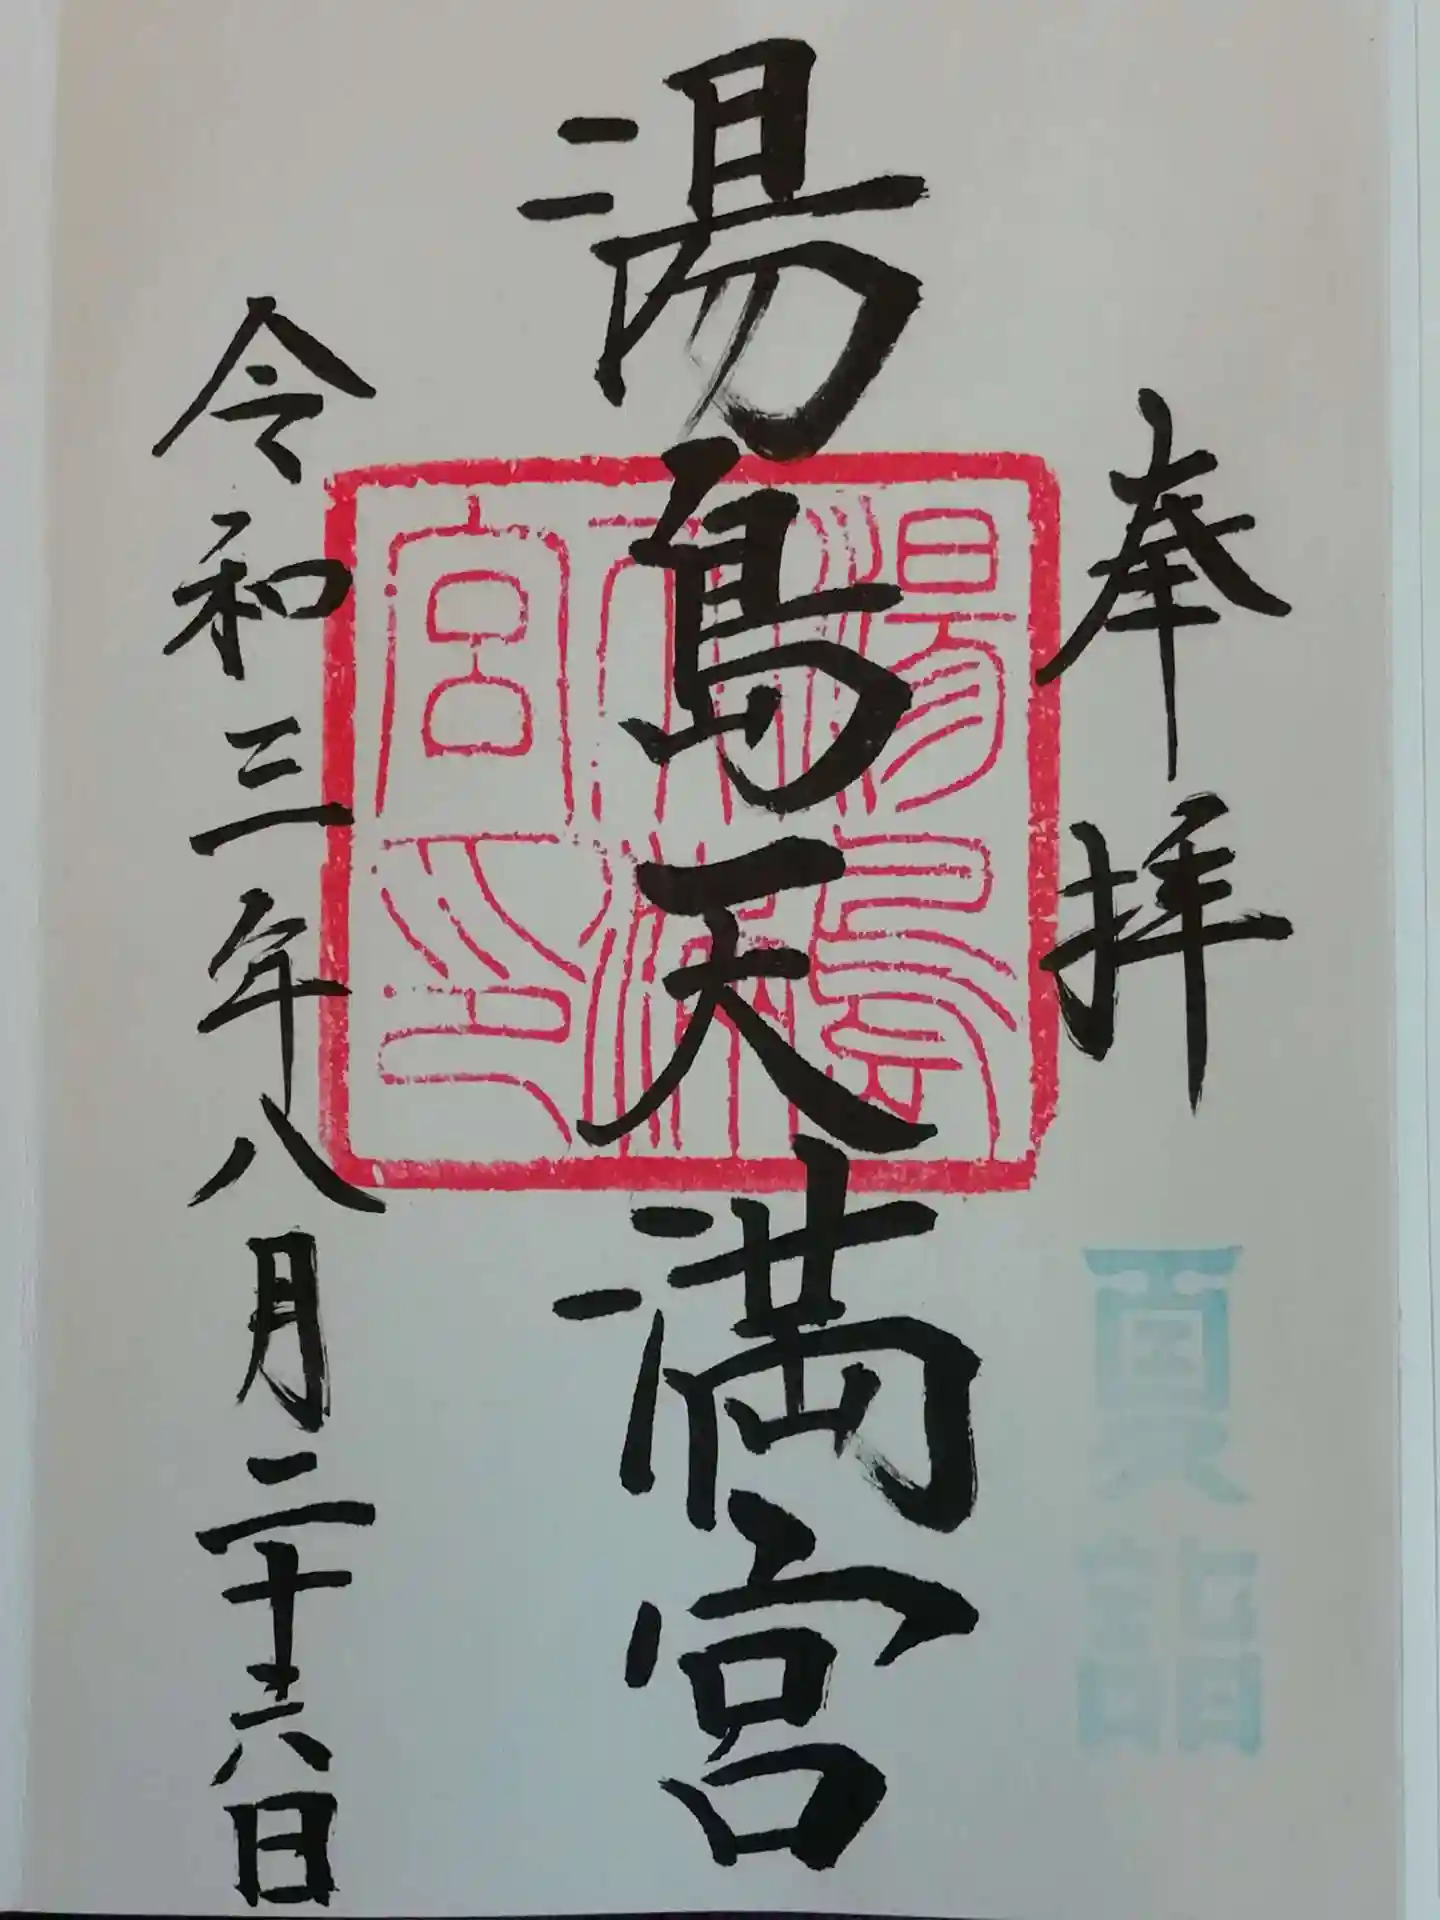 奉拝
夏詣
湯島天満宮
湯島
天満
宮印
令和三年八月二十六日